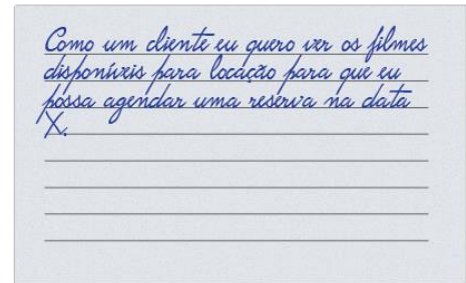 Como um cliente eu quero ver os filmes
disponíveis para locação para que eu
possa agendar uma reserva na data
X.